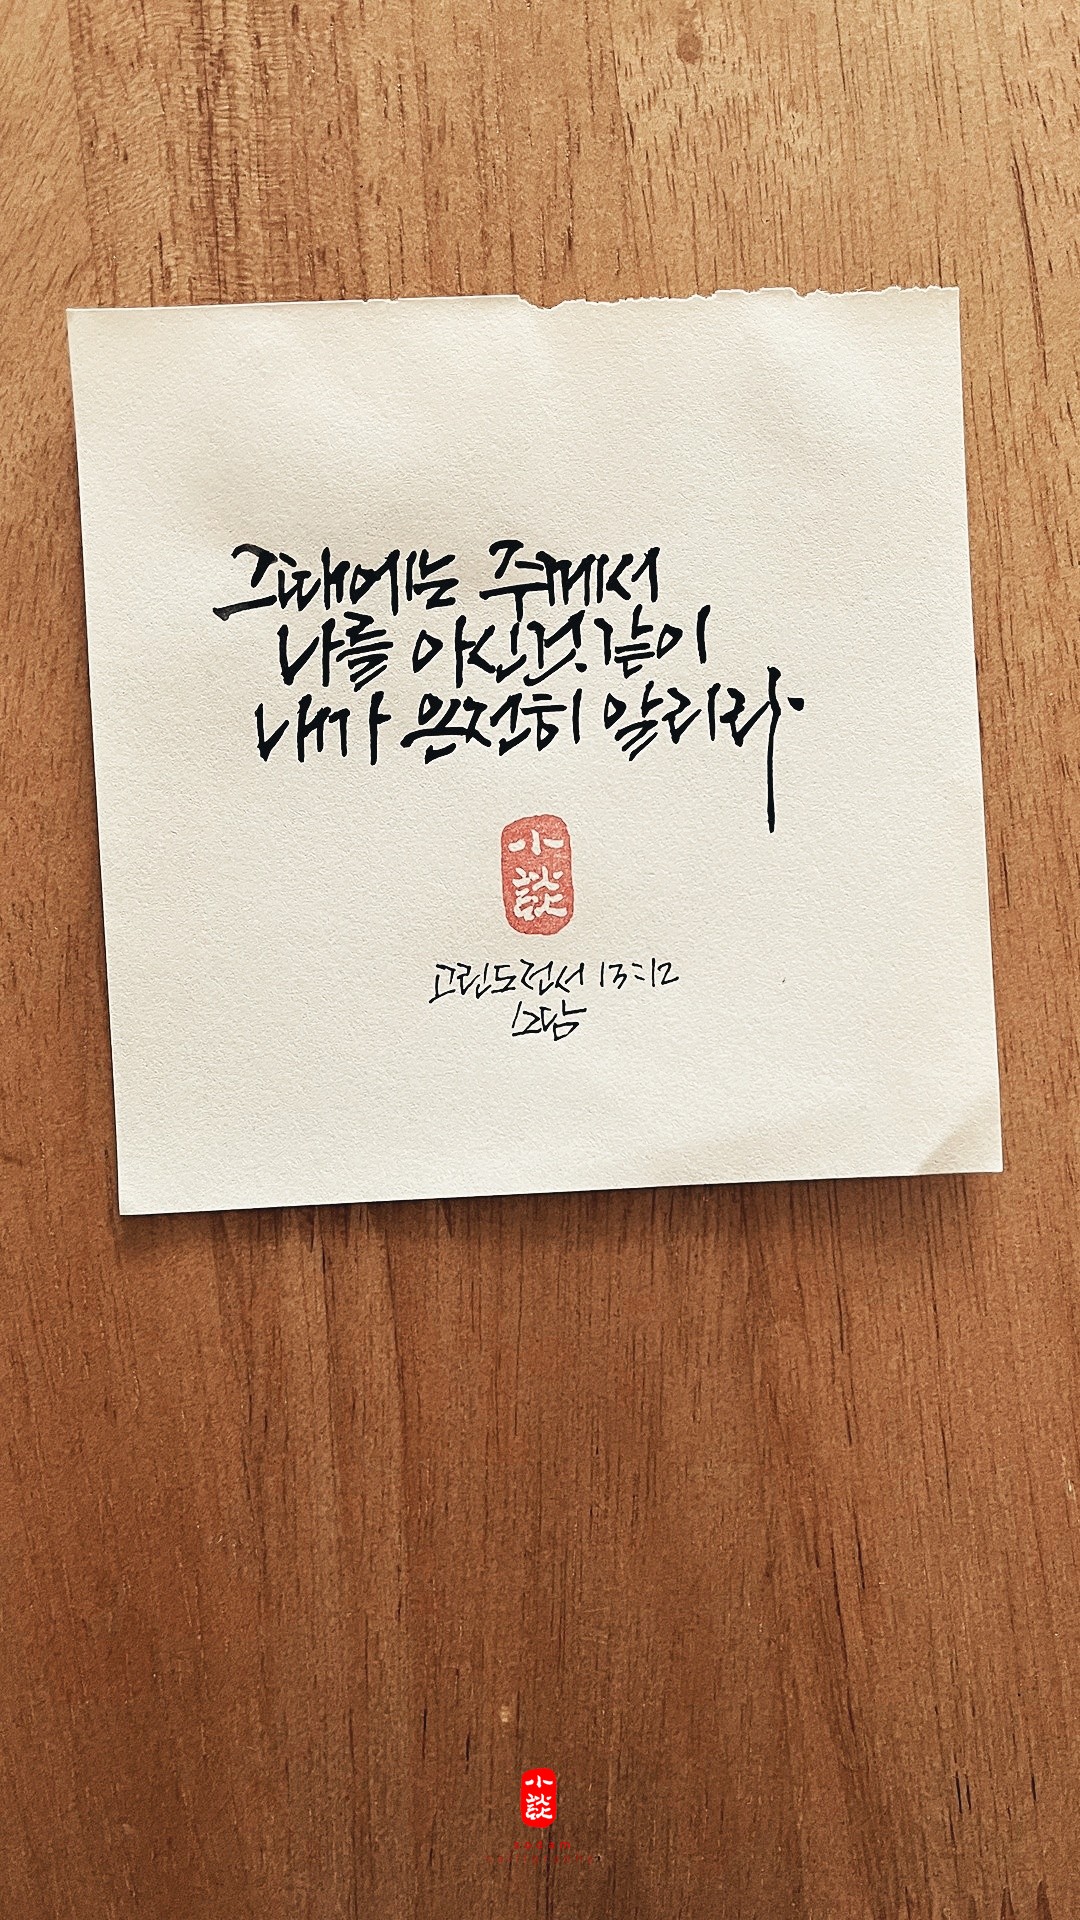 그때에는 주께서
나를 아신것.같이
내가 온전히 알리라.
小
談
고린도전서 13:12
소담
小
談